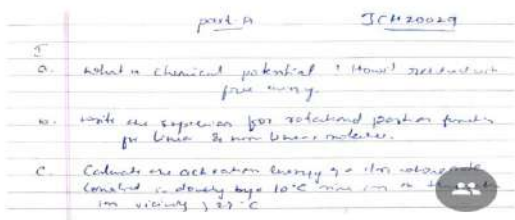 part A JCH20029
I
a. what is chemical potential ? How it related with
free energy.
b. write the expression for rotational partition function
for linear & non linear molecules.
c. Calculate the activation energy of a rxn whose rate
constant is double by a 10°C rise in
in vicinity 27°C